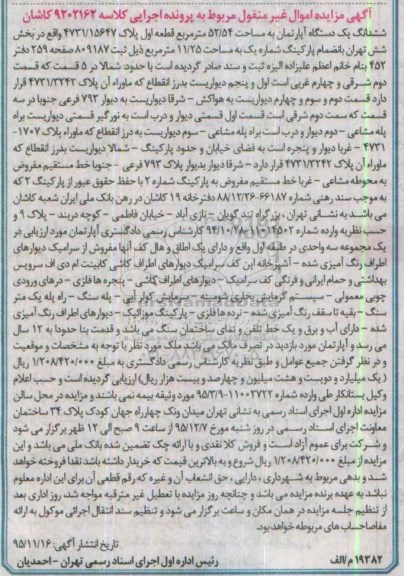 آگهی مزایده اموال غیر منقول مربوط به پرونده اجرایی کلاسه ۹۲۰۲۱۶۲ کاشان
ششدانگ یک دستگاه آپارتمان به مساحت ۵۲/۵۴ مترمربع قطعه اول پلاک ۴۷۳۱/۱۵۶۴۷ واقع در بخش
شش تهران بانضمام پارکینگ شماره یک به مساحت ۱۱/۲۵ مترمربع ذیل ثبت ۸۰۹۱۸۷ صفحه ۲۵۹ دفتر
۴۵۲ بنام خانم اعظم علیزاده الیزه ثبت و سند صادر گردیده است با حدود: شمالا در ۵ قسمت که قسمت
دوم شرقی و چهارم غربی است اول و پنجم دیواریست بدرز انقطاع که ماوراء آن پلاک ۴۷۳۱/۳۲۴۲ قرار
دارد قسمت دوم و سوم و چهارم دیواریست به هواکش - شرقا دیواریست به دیوار ۷۹۳ فرعی جنوبا در سه
قسمت که سمت دوم شرقی است قسمت اول قسمتی دیوار و درب است به نورگیر قسمتی دیواریست براه
پله مشاعی - دوم دیوار و درب است براه پله مشاعی - سوم دیواریست به درز انقطاع که ماوراء پلاک ۱۷۰۷-
۴۷۳۱ - غربا دیوار و پنجره است به فضای خیابان و حدود پارکینگ - شمالا دیواریست بدرز انقطاع که
ماوراء آن پلاک ۴۷۳۱/۳۲۴۲ قرار دارد - شرقا دیوار بدیوار پلاک ۷۹۳ فرعی - جنوبا خط مستقیم مفروض
به محوطه مشاعی - غربا خط مستقیم مفروض به پارکینگ شماره ۲ با حفظ حقوق عبور از پارکینگ ۲ که
به موجب سند رهنی شماره ۶۶۱۸۷-۸۸/۱۲/۲۶ دفترخانه ۱۹ کاشان در رهن بانک ملی ایران شعبه کاشان
می باشد به نشانی تهران ، بزرگراه تندگویان - نازی آباد - خیابان فاطمی - کوچه دربند - پلاک ۹ و
حسب نظریه وارده شماره ۱۱۰۱۴۵۰۲-۹۴/۱۰/۷ کارشناس رسمی دادگستری آپارتمان مورد ارزیابی در
یک مجموعه سه واحدی در طبقه اول واقع و دارای یک اطاق و هال کف آنها مفروش از سرامیک دیوارهای
اطراف رنگ آمیزی شده - آشپزخانه این کف سرامیک دیوارهای اطراف کاشی کابینت ام دی اف سرویس
بهداشتی و حمام ایرانی و فرنگی کف سرامیک - دیوارهای اطراف کاشی - پنجره ها فلزی - درهای ورودی
چوبی معمولی - سیستم گرمایش بخاری شومینه - سرمایش کولر آبی - پله سنگ - راه پله یک متر
سنگ - بقیه تا سقف رنگ آمیزی شده - نرده ها فلزی - پارکینگ موزائیک - دیوارهای اطراف رنگ آمیزی
شده - دارای آب و برق و یک خط تلفن و نمای ساختمان سنگ می باشد و قدمت بنا حدودا به ۱۲ سال
می رسد و آپارتمان مورد بازدید در تصرف مالک می باشد ملک مورد نظر با توجه به مشخصات و موقعیت
و در نظر گرفتن جمیع عوامل و طبق نظریه کارشناس رسمی دادگستری به مبلغ ۱/۲۰۸/۴۲۰/۰۰۰ ریال
( یک میلیارد و دویست و هشت میلیون و چهارصد و بیست هزار ریال) ارزیابی گردیده است و حسب اعلام
وکیل بستانکار طی وارده شماره ۱۱۰۰۳۷۲۲-۹۵/۳/۹ مورد وثیقه بیمه نمی باشند و مزایده در محل سالن
مزایده اداره اول اجرای اسناد رسمی به نشانی تهران میدان ونک چهارراه جهان کودک پلاک ۳۴ ساختمان
معاونت اجرای اسناد رسمی در روز شنبه مورخ ۹۵/۱۲/۷ از ساعت ۹ صبح الی ۱۲ ظهر برگزار می شود
و شرکت برای عموم آزاد است و فروش کلا نقدی و با ارائه چک تضمین شده بانک ملی می باشد و این
مزایده از مبلغ ۱/۲۰۸/۴۲۰/۰۰۰ ریال شروع و به بالاترین قیمت که خریدار داشته باشد نقدا فروخته خواهد
شد و بدهی مربوط به شهرداری ، دارایی ، حق انشعاب آن و غیره که رقم قطعی آن برای این اداره معلوم
نباشد به عهده برنده مزایده می باشد و چنانچه روز مزایده با تعطیل غیر مترقبه مواجه شد، روز اداری بعد
از تنظیم جلسه مزایده در همان مکان و ساعت برگزار می شود و تنظیم سند انتقال اجرائی موکول به ارائه
مفاصاحساب های مربوطه خواهد بود.
تاریخ انتشار آگهی: ۹۵/۱۱/۱۶
۱۹۳۸۲ م/الف
رئیس اداره اول اجرای اسناد رسمی تهران - احمدیان